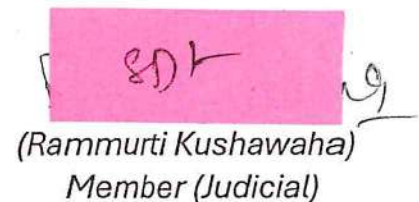 SD/-
(Rammurti Kushawaha)
Member (Judicial)